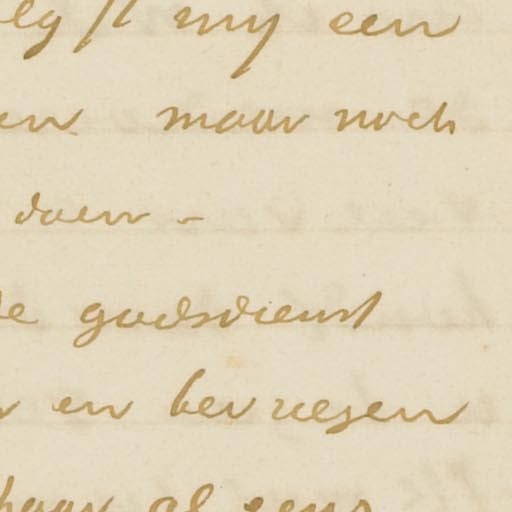 my een
en maar noch
doen -
de godsdienst
en bewegen
haar al eens